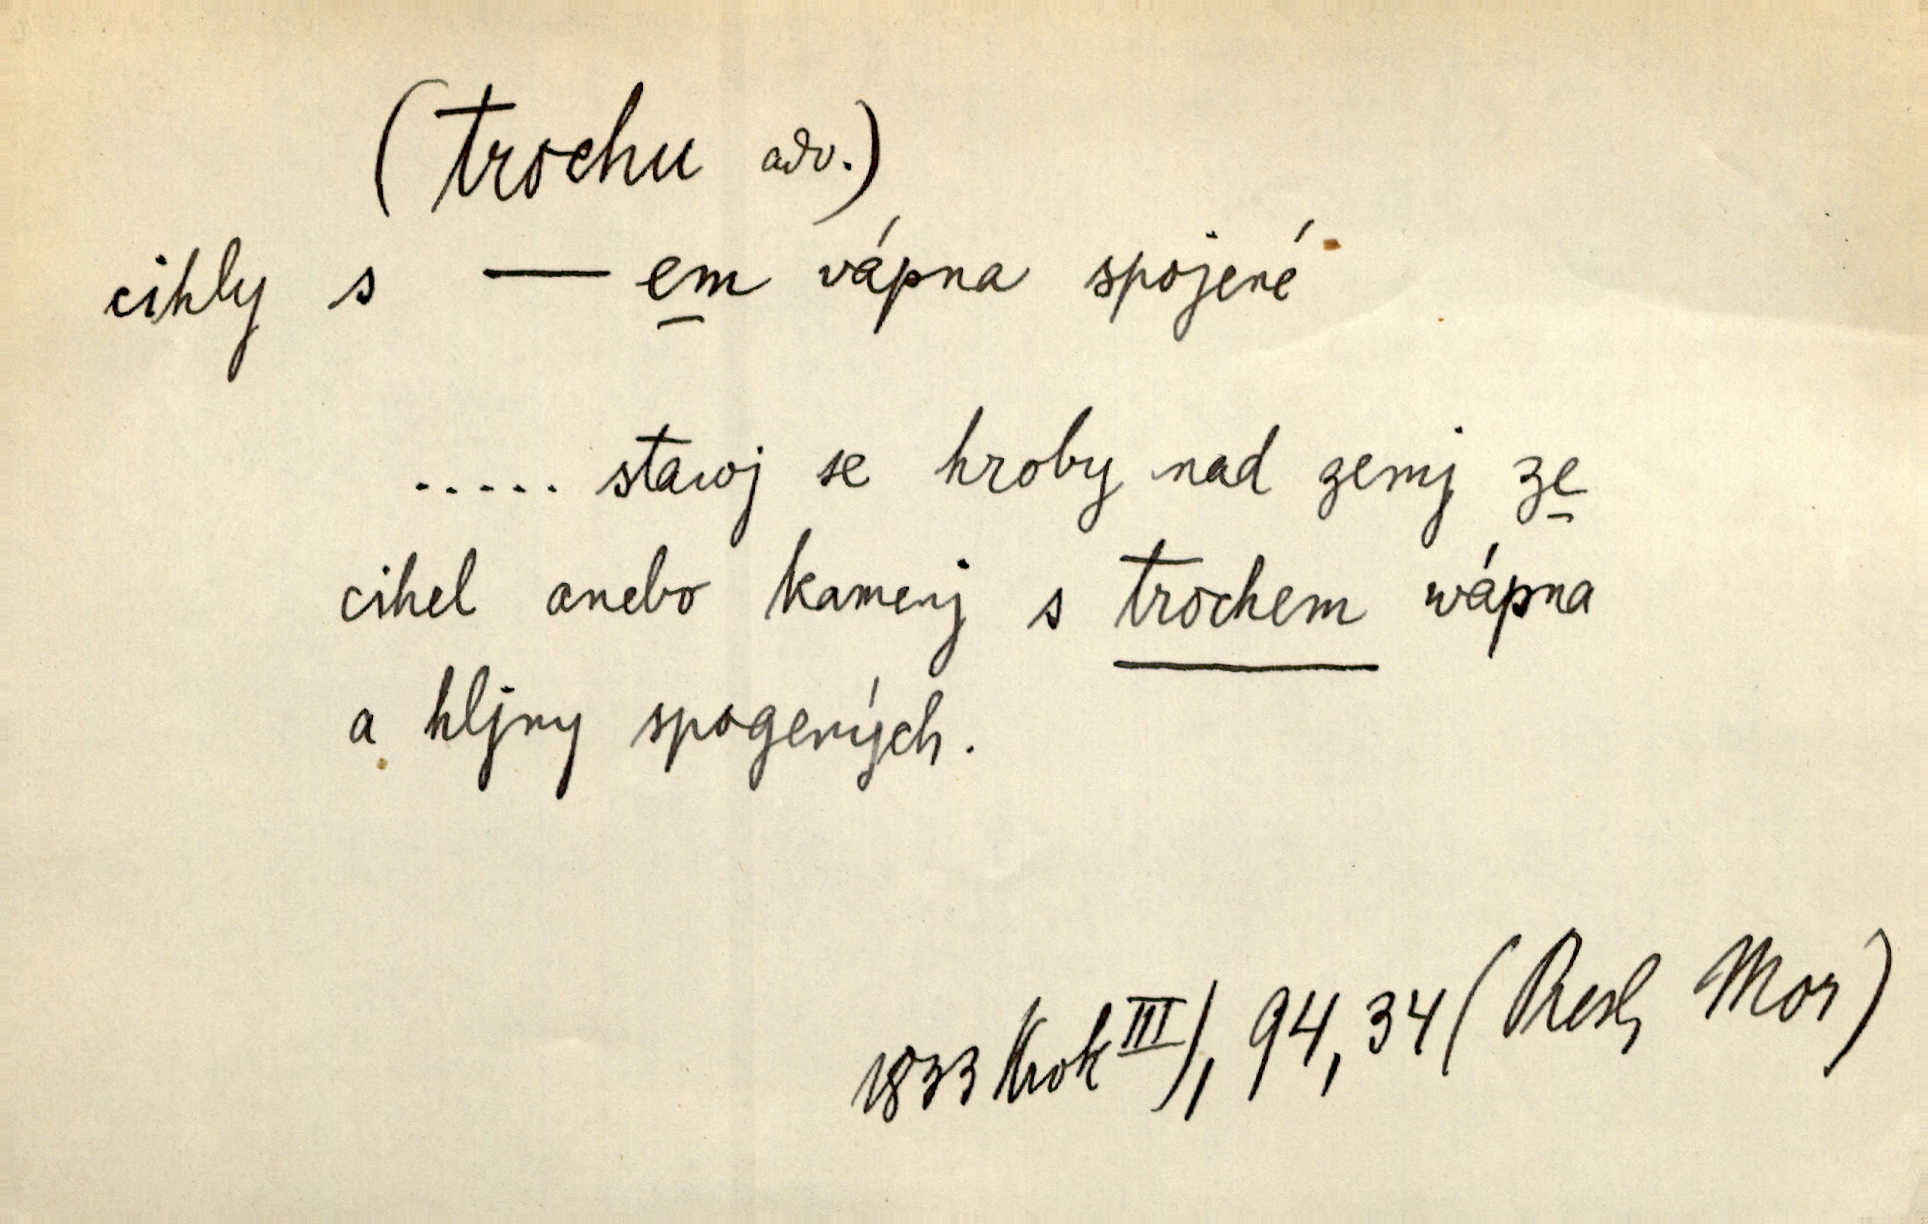 (trochu adv.)
cihly s — em vápna spojené
..... stawj se hroby nad zemj ze
cihel anebo kamenj s trochem wápna
a hljny spogených.
1833 Krok III), 94, 34 (Presl, Mor)